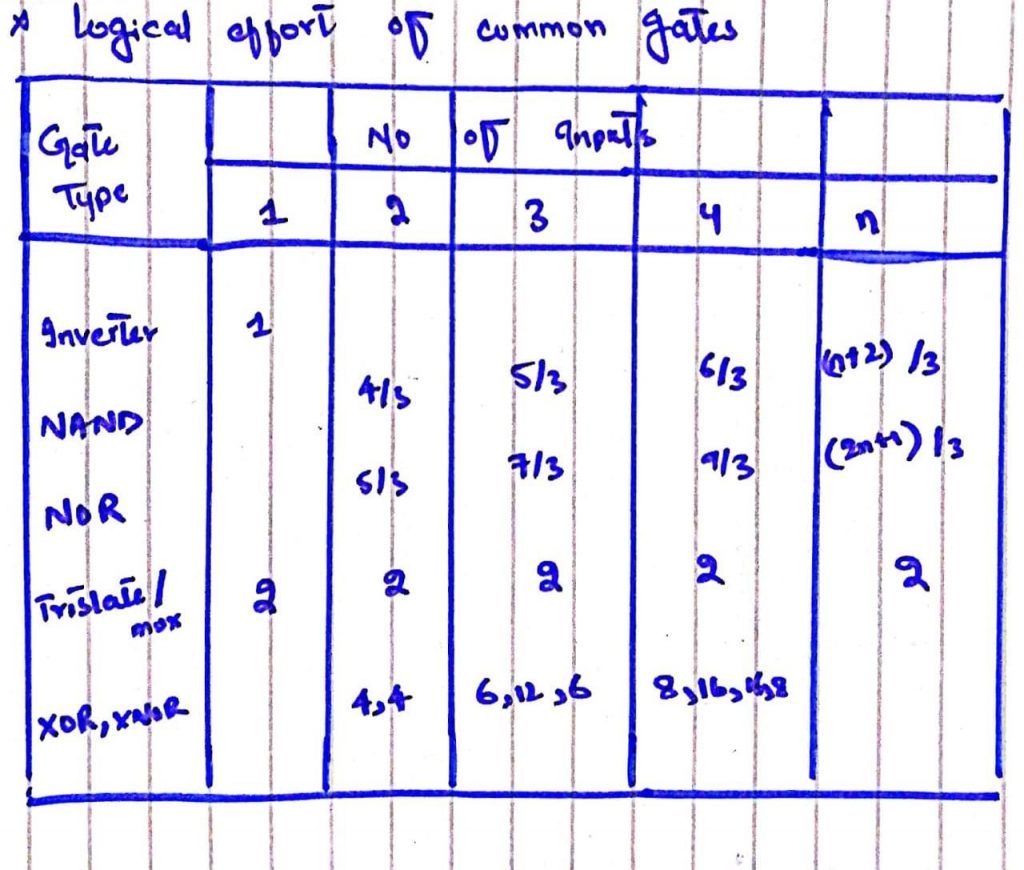 * Logical effort of common gates
Gate Type No of Inputs
1 2 3 4 n
Inverter 1
NAND 4/3 5/3 6/3 (n+2) /3
NOR 5/3 7/3 9/3 (2n+1) /3
Tristate / mox 2 2 2 2 2
XOR, XNOR 4,4 6,12,6 8,16,16,8